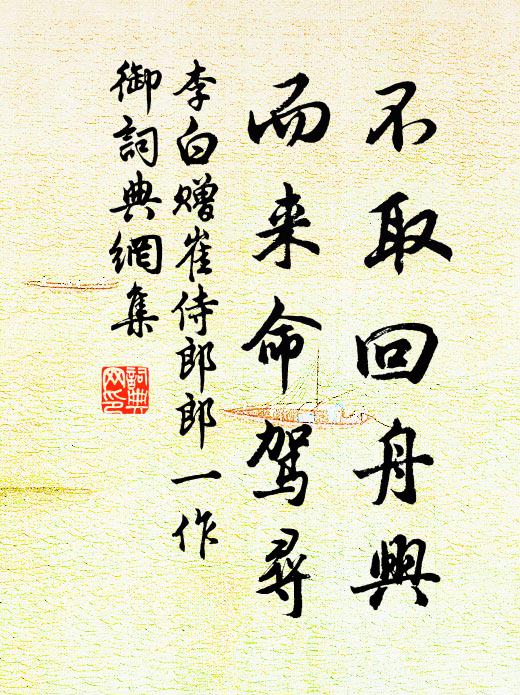 不取回舟興
而来命駕尋
李白贈崔侍郎郎一作
御詞典網集
詞典
网印